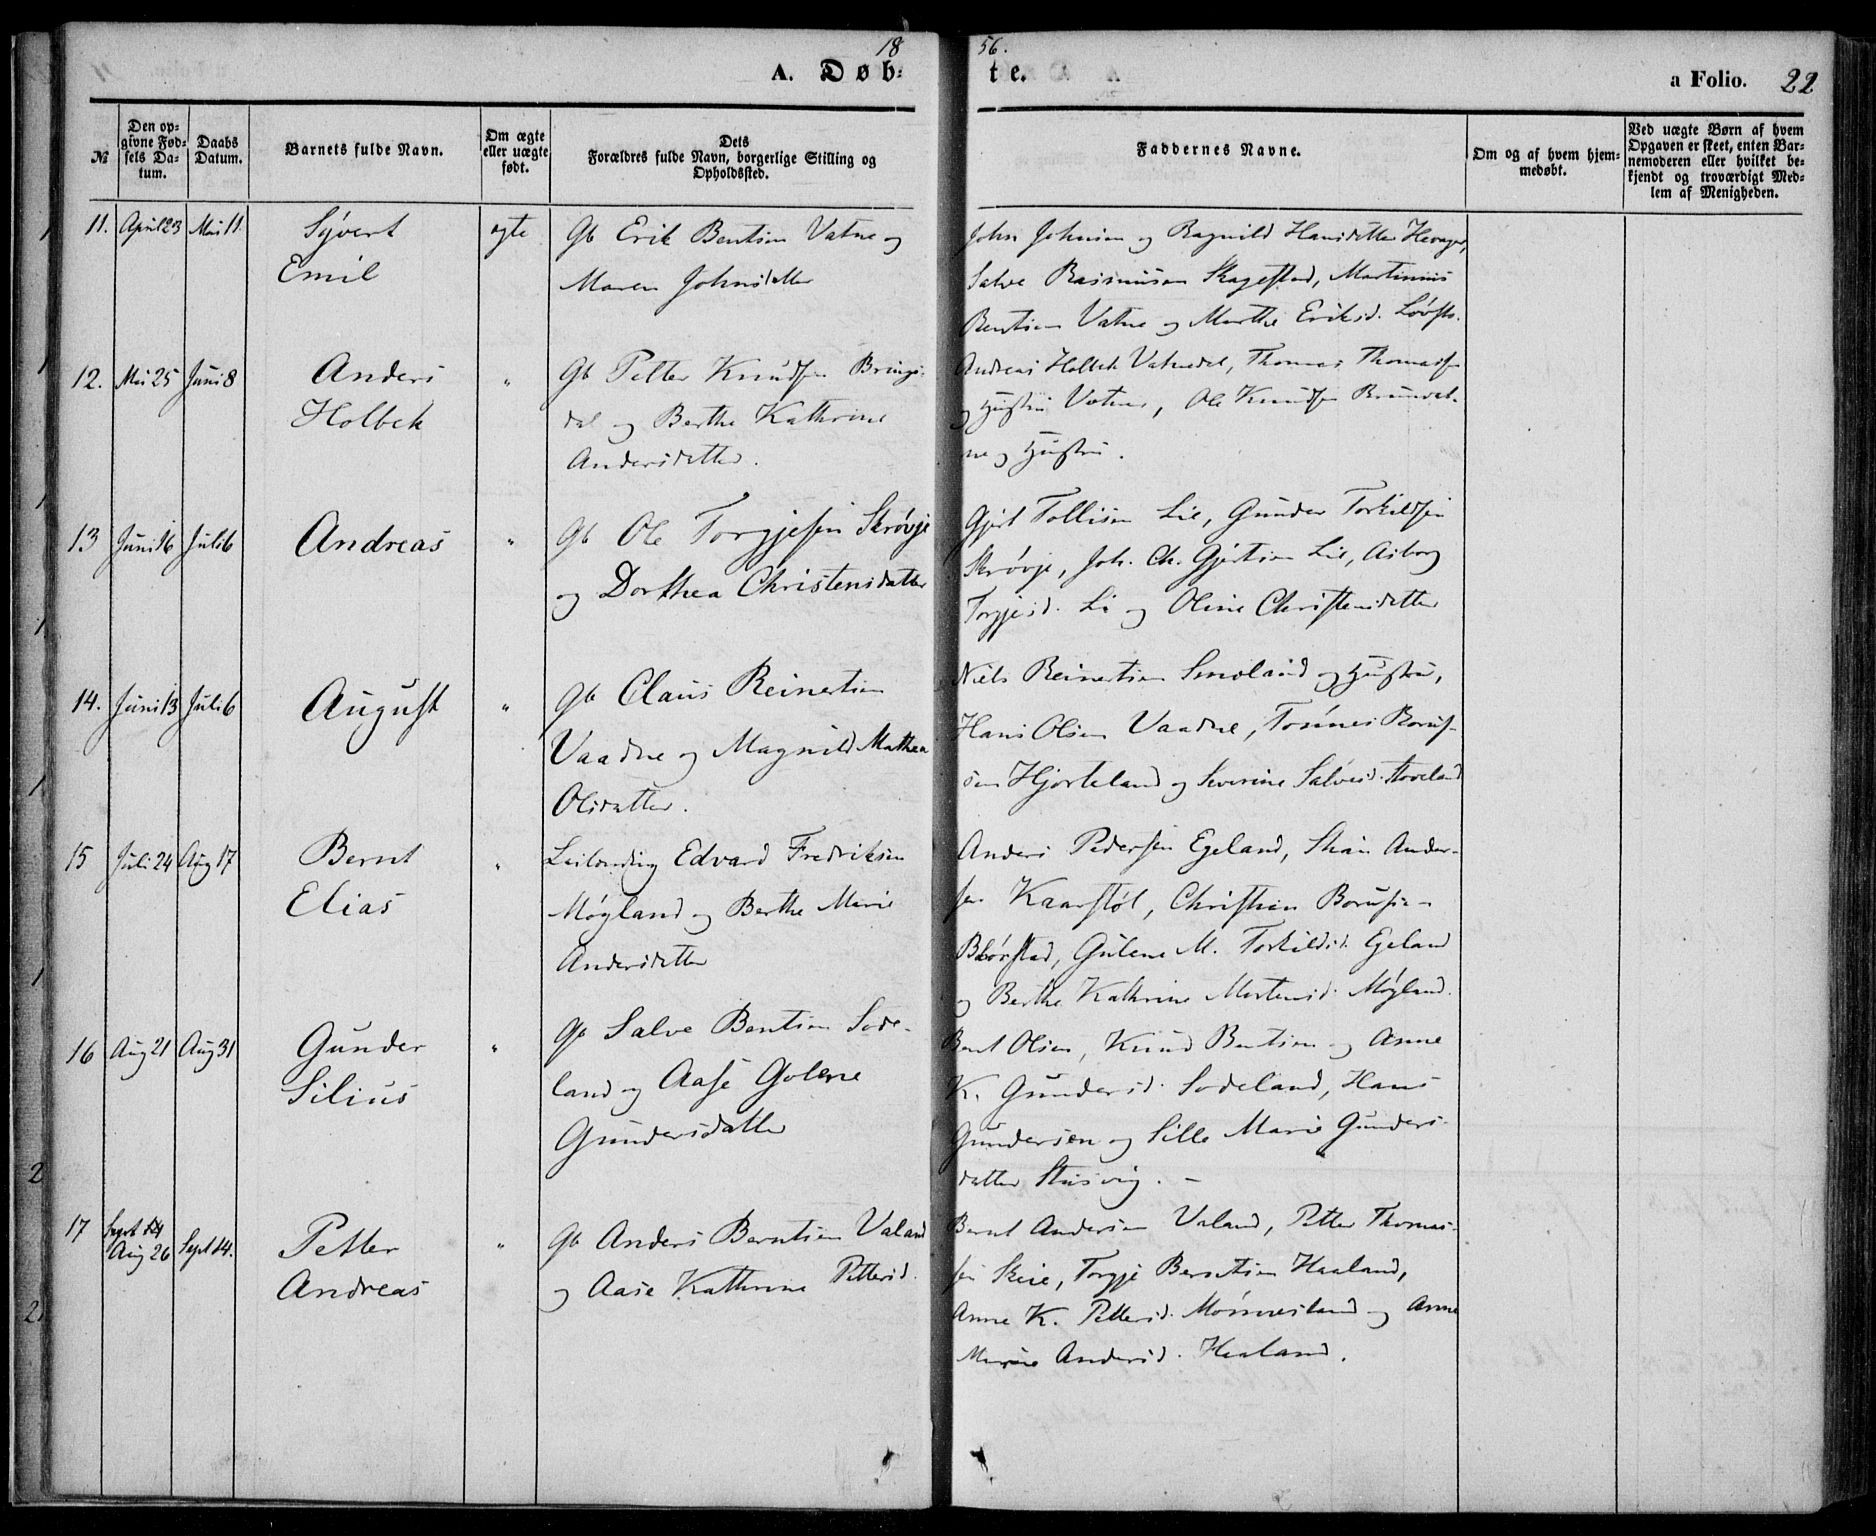 18
56.
A. Døb-
te.
a Folio. 22
№
Den op-
givne Fød-
sels Da-
tum.
Daabs
Datum.
Barnets fulde Navn.
Om ægte
eller uægte
født.
Dets
Forældres fulde Navn, borgerlige Stilling og
Opholdssted.
Faddernes Navne.
Om og af hvem hjem-
medøbt.
Ved uægte Børn af hvem
Opgaven er skeet, enten Bar-
nemoderen eller hvilket be-
kjendt og troværdigt Med-
lem af Menigheden.
11. April 23 Mai 11. Syvert ægte Gb Erik Bentsen Vatne og
Emil Maren Johnsdatter
John Johnsen og Ragnild Hansdatter
Salve Rasmusen Skagestad, Martinius
Bentsen Vatne og Marthe Eriksd.
12. Mai 25 Juni 8 Anders " Gb Petter Knudsen Brings-
Holbek dal og Berthe Kathrine
Andersdatter.
Andreas Holbek Vatnedal, Thomas Thomassen
og Hustru Vatne, Ole Knudsen
ne og Hustru.
13 Juni 16 Juli 6 Andreas " Gb Ole Torgjesen Skrøvje
og Dorthea Christensdatter
Gjert Tollisen Lie, Gunder Torkildsen
Skrøvje, Joh. Ch. Gjertsen Lie, Asborg
Torgjesd. Li og Oline Christensdatter
14. Juni 13 Juli 6 August " Gb Claus Reinertsen
Vaadne og Magnild Mathea
Olsdatter.
Niels Reinertsen Smoland og Hustru,
Hans Olsen Vaadne, Tønnes Borus-
sen Hjorteland og Severine Salvesd. Hoveland
15 Juli 24 Aug 17 Bernt " Leilænding Edvard Fredriksen
Elias Møgland og Berthe Marie
Andersdatter
Anders Pedersen Egeland, Ander-
sen Kaarstøl, Christian Borusen
Gulene M. Torkildsd. Egeland
og Berthe Kathrine Mortensd. Møgland.
16 Aug 21 Aug 31 Gunder " Gb Salve Bentsen Sode-
Silius land og Aase Golene
Gundersdatter
Bent Olsen, Knud Bentsen og Anne
K. Gundersd. Sodeland, Hans
Gundersen og Sille Marie Gunders-
datter Stusvig. -
17 Sept 14
Aug 26 Sept 14. Petter " Gb Anders Berntsen Valand
Andreas og Aase Kathrine Pettersd.
Bernt Andersen Valand, Petter Thomas-
sen Skeie, Torgje Berntsen Haaland,
Anne K. Pettersd. Mønnesland og Anne
Marie Andersd. Haaland.